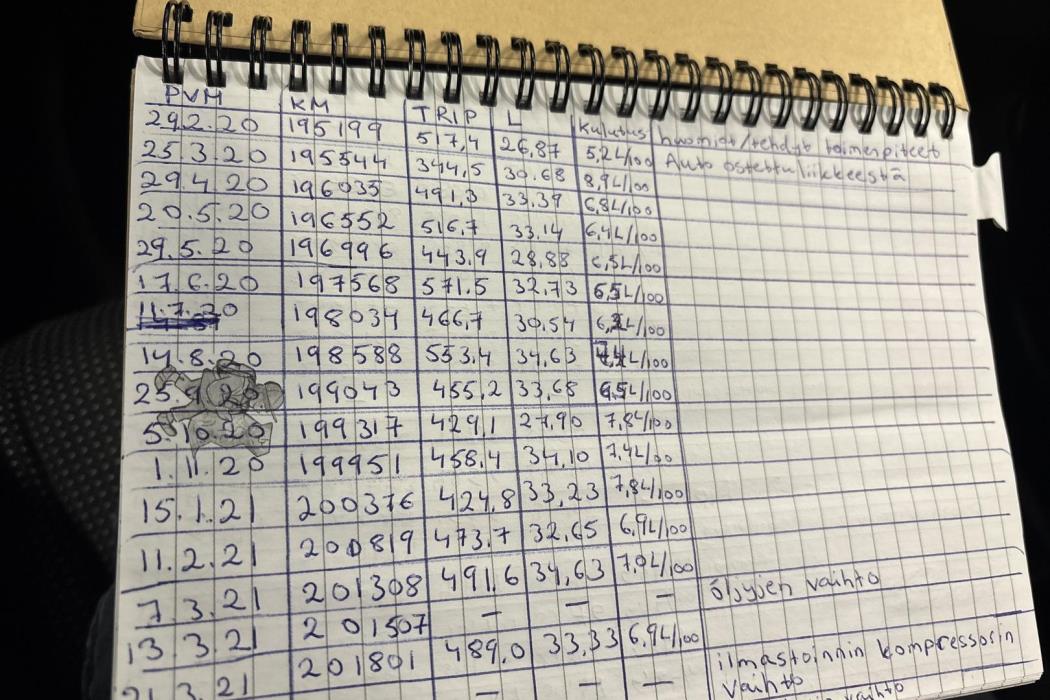 PVM KM TRIP L Kulutus huomiot/tehdyt toimenpiteet
29.2.20 195199 517,4 26,87 5,2L/100 Auto ostettu liikkeestä
25.3.20 195544 344,5 30.68 8,9L/100
29.4.20 196035 491,3 33,39 6,8L/100
20.5.20 196552 516,7 33,14 6,4L/100
29.5.20 196996 443.9 28,88 6,5L/100
17.6.20 197568 571.5 32,73
11.7.20 198034 466,7 30,54
14.8.20 198588 553.4 34,63
199043 455,2 33,68
5.10.20 199317 429,1 27,90 7,8L/100
1.11.20 199951 458,4 34,10 7,4L/100
15.1.21 200376 424,8 33,23 7,8L/100
11.2.21 200819 473.7 32,65 6,9L/100
7.3.21 201308 491.6 34,63 7,0L/100
13.3.21 201507 – – – öljyjen vaihto
21.3.21 201801 489,0 33,33 6,9L/100
– – – ilmastoinnin kompressorin
vaihto
vaihto